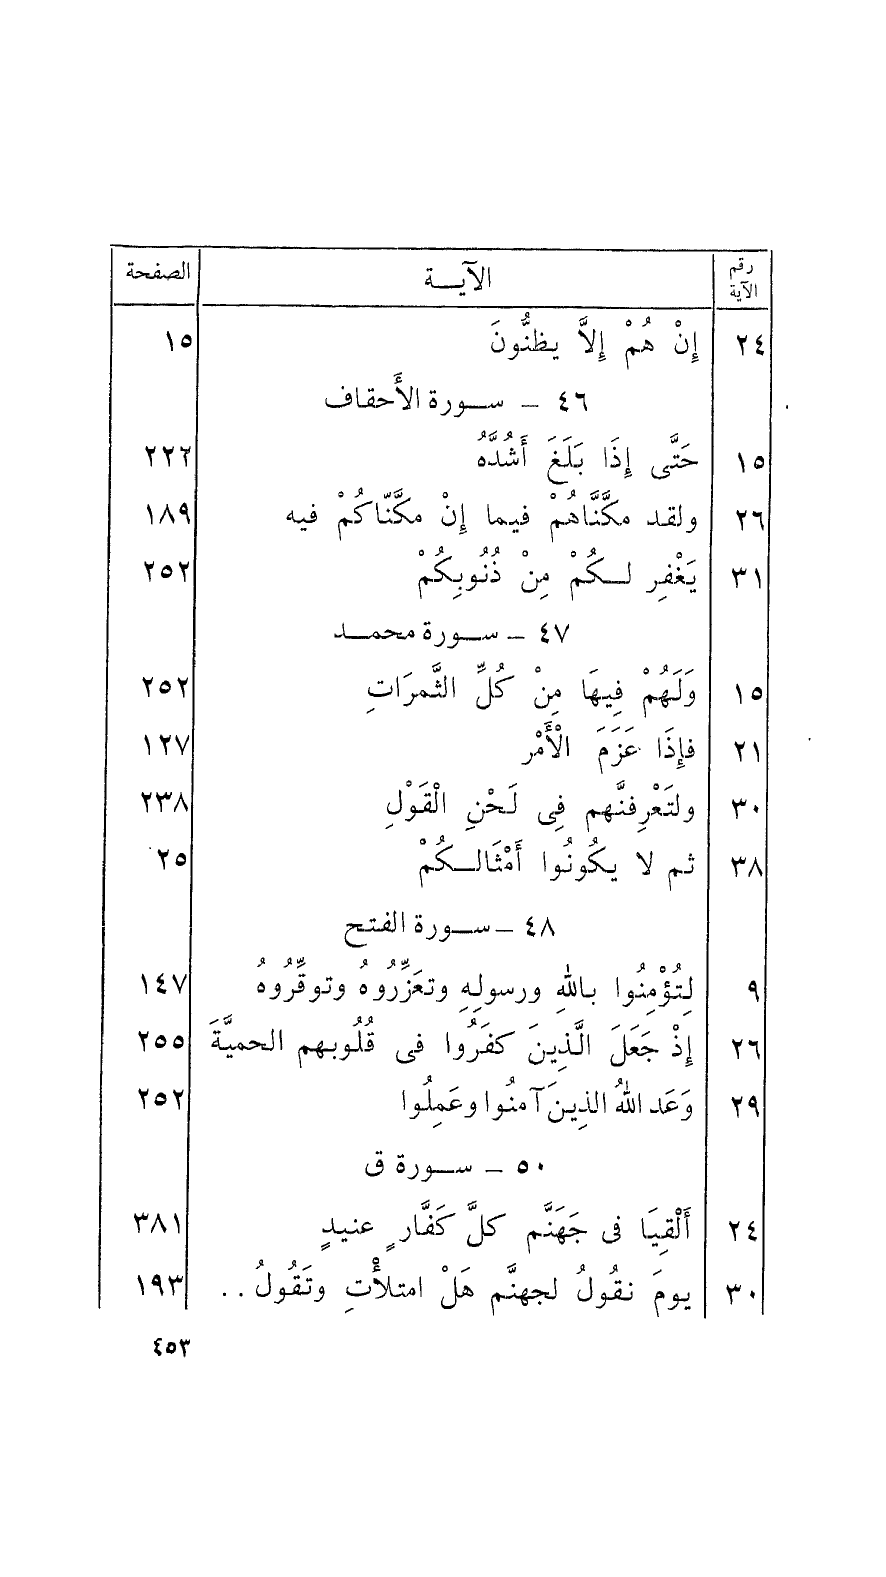 رقم الآية | الآيـــة | الصفحة
٢٤ | إِنْ هُمْ إِلاَّ يظنُّونَ | ١٥
٤٦ – ســورة الأَحقاف
١٥ | حَتَّى إِذَا بَلَغَ أَشُدَّهُ | ٢٢٢
٢٦ | ولقد مكَّنَّاهُمْ فيما إِنْ مكنَّاكُمْ فيه | ١٨٩
٣١ | يَغْفِر لــكُمْ مِنْ ذُنُوبِكُمْ | ٢٥٢
٤٧ – ســورة محمــد
١٥ | وَلَهُمْ فِيهَا مِنْ كُلِّ الثَّمرَاتِ | ٢٥٢
٢١ | فإِذَا عَزَمَ الْأَمْر | ١٢٧
٣٠ | ولتَعْرِفنَّهم فِى لَحْنِ الْقَوْلِ | ٢٣٨
٣٨ | ثم لا يكُونُوا أَمْثَالــكُمْ | ٢٥
٤٨ – ســورة الفتح
٩ | لِتُؤْمِنُوا باللهِ ورسولِهِ وتعَزِّرُوهُ وتوقِّرُوهُ | ١٤٧
٢٦ | إِذْ جَعَلَ الَّذِينَ كفَرُوا فى قُلُوبهم الحميَّةَ | ٢٥٥
٢٩ | وَعَد اللهُ الذِينَ آمنُوا وعَمِلُوا | ٢٥٢
٥٠ – ســورة ق
٢٤ | أَلْقِيَا فى جَهَنَّم كلَّ كَفَّارٍ عنيدٍ | ٣٨١
٣٠ | يومَ نقُولُ لجهنَّم هَلْ امتلأْتِ وتَقُولُ .. | ١٩٣
٤٥٣